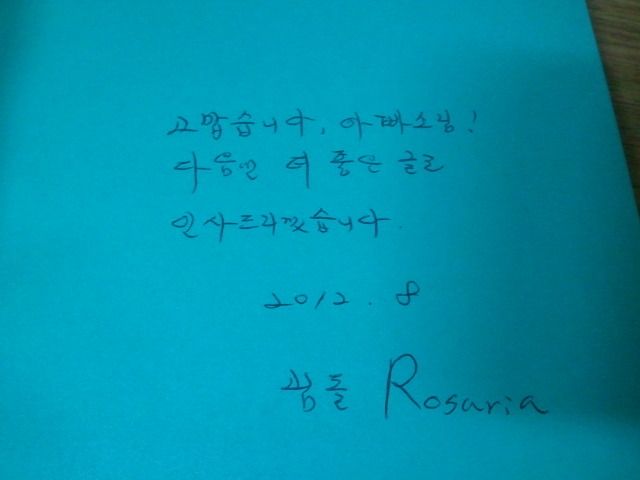 고맙습니다, 아빠소님!
다음엔 더 좋은 글로
인사드리겠습니다.
2012. 8
Rosaria